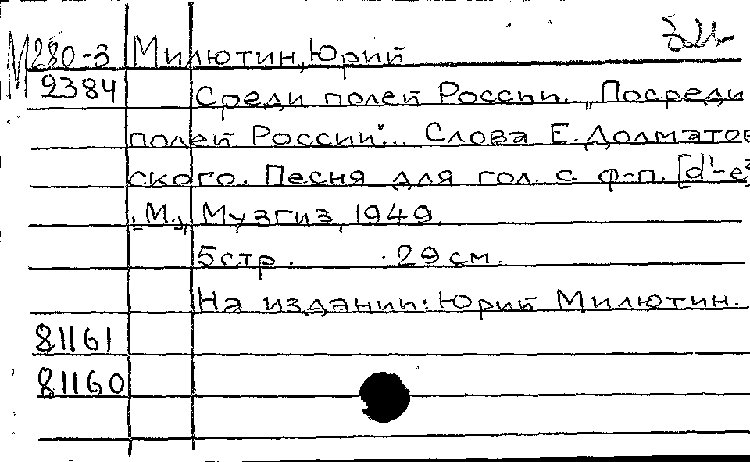 М280-3 Милютин, Юрий
9384 Среди полей России. „Посреди
полей России"... Слова Е. Долматов
ского. Песня для гол. с ф-п. [d'-e
М., Музгиз, 1949.
5 стр. 29 см.
На издании: Юрий Милютин.
81161
81160